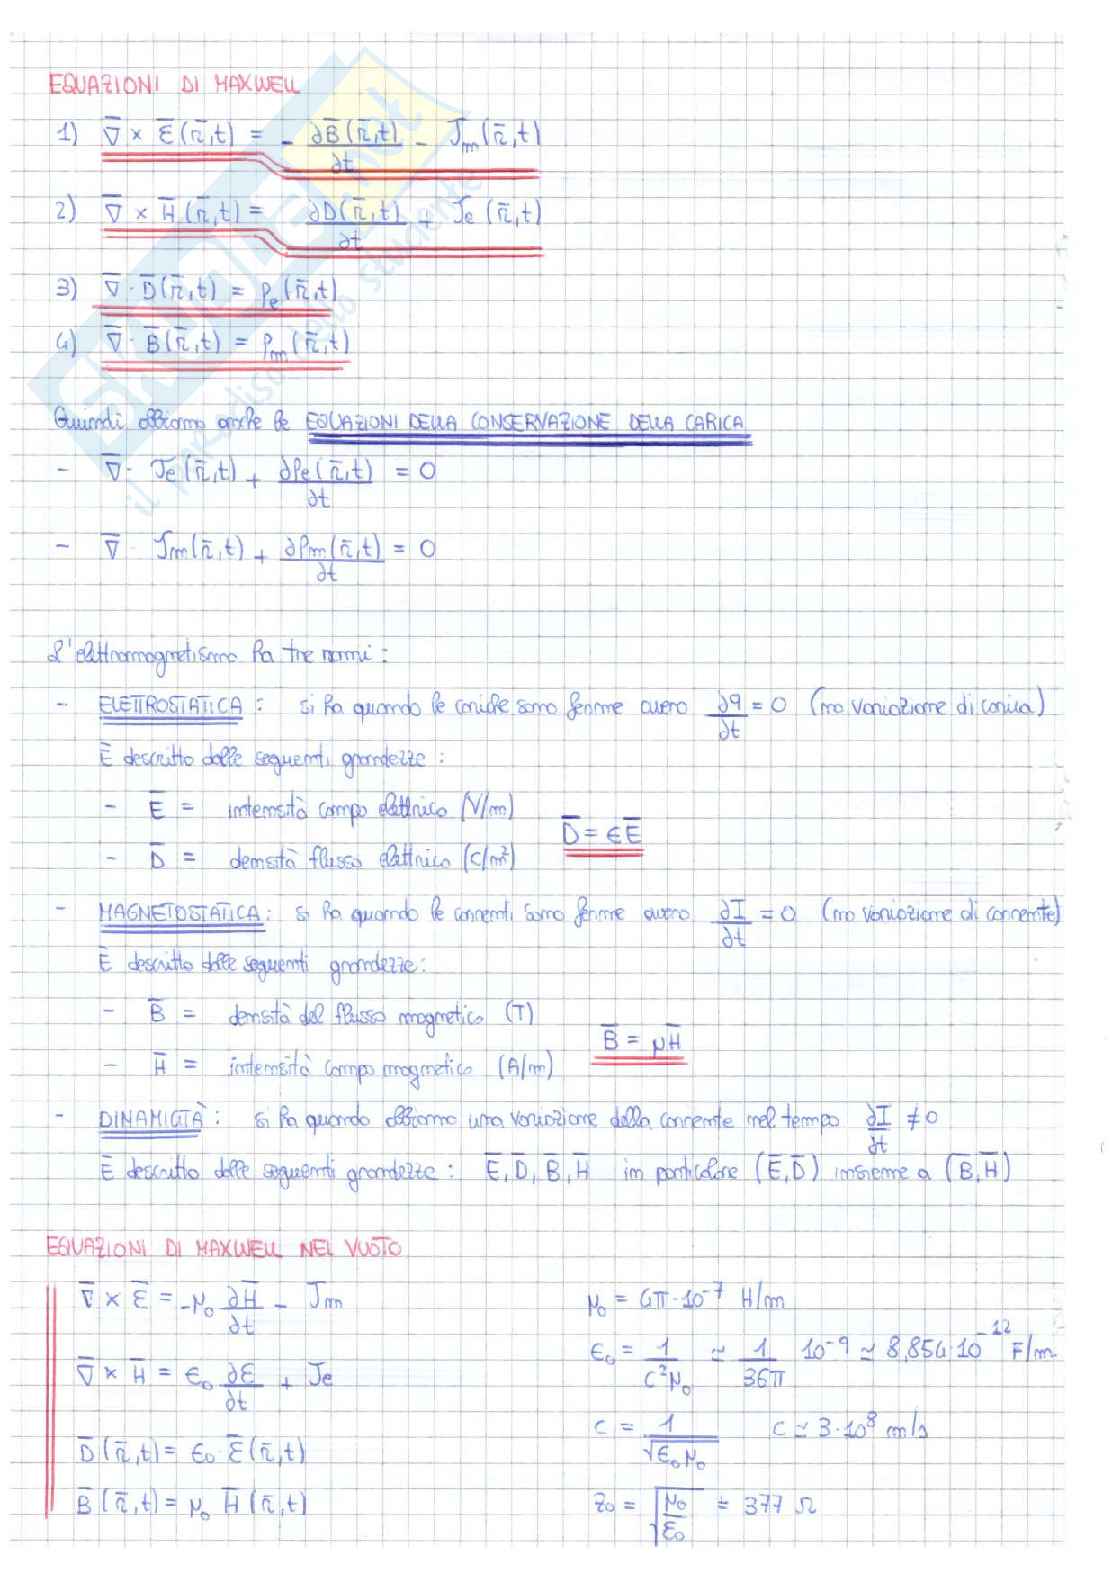 EQUAZIONI DI MAXWELL
1) ∇̄ × Ē(r̄,t) = - ∂B̄(r̄,t)/∂t - J̄m(r̄,t)
2) ∇̄ × H̄(r̄,t) = ∂D(r̄,t)/∂t + Je(r̄,t)
3) ∇̄ · D̄(r̄,t) = ρe(r̄,t)
4) ∇̄ · B̄(r̄,t) = ρm(r̄,t)
Quindi abbiamo anche le EQUAZIONI DELLA CONSERVAZIONE DELLA CARICA
- ∇̄ · Je(r̄,t) + ∂ρe(r̄,t)/∂t = 0
- ∇̄ · Jm(r̄,t) + ∂ρm(r̄,t)/∂t = 0
L'elettromagnetismo ha tre nomi:
- ELETTROSTATICA: si ha quando le cariche sono ferme ovvero ∂q/∂t = 0 (no variazione di carica)
È descritto dalle seguenti grandezze:
- Ē = intensità campo elettrico (V/m)
D̄ = εĒ
- D̄ = densità flusso elettrico (C/m²)
- MAGNETOSTATICA: si ha quando le correnti sono ferme ovvero ∂I/∂t = 0 (no variazione di corrente)
È descritto dalle seguenti grandezze:
- B̄ = densità del flusso magnetico (T)
B̄ = μH̄
- H̄ = intensità campo magnetico (A/m)
- DINAMICITÀ: si ha quando abbiamo una variazione della corrente nel tempo ∂I/∂t ≠ 0
È descritto dalle seguenti grandezze: Ē, D̄, B̄, H̄ in particolare (Ē,D̄) insieme a (B̄,H̄)
EQUAZIONI DI MAXWELL NEL VUOTO
∇̄ × Ē = -μ₀ ∂H̄/∂t - J̄m
μ₀ = 4π·10⁻⁷ H/m
∇̄ × H̄ = ε₀ ∂Ē/∂t + Je
ε₀ = 1/(c²μ₀) ≃ 1/36π 10⁻⁹ ≃ 8,854·10⁻¹² F/m
D̄(r̄,t) = ε₀ · Ē(r̄,t)
c = 1/√(ε₀μ₀) c ≃ 3·10⁸ m/s
B̄(r̄,t) = μ₀ H̄(r̄,t)
z₀ = √(μ₀/ε₀) = 377 Ω